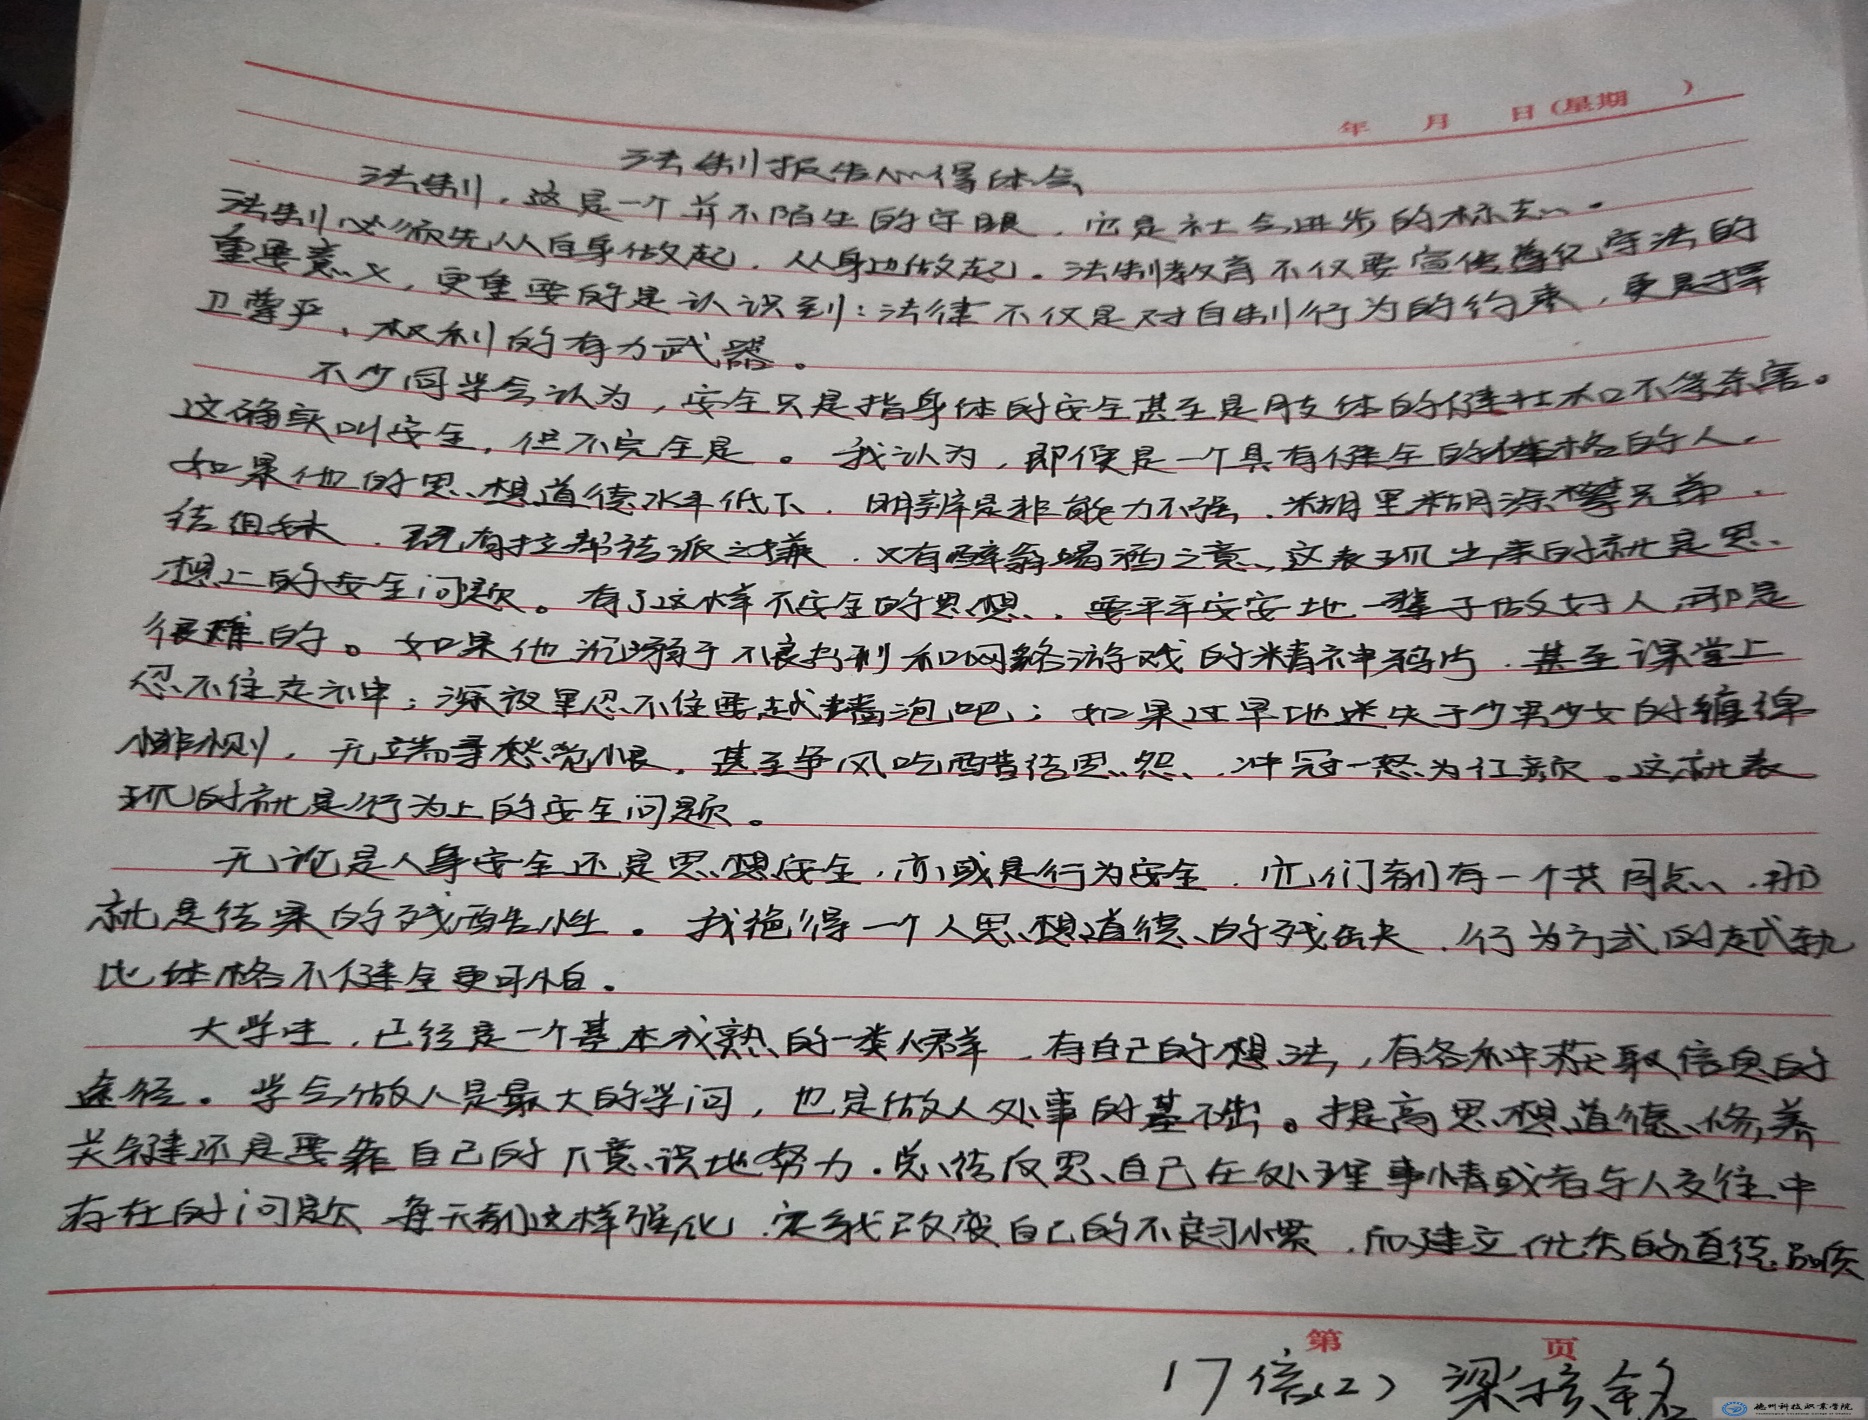 年 月 日(星期 )
法制报告心得体会
法制,这是一个并不陌生的字眼,它是社会进步的标志。
法制必须先从自身做起,从身边做起。法制教育不仅要宣传遵纪守法的
重要意义,更重要的是认识到:法律不仅是对自制行为的约束,更是捍
卫尊严、权利的有力武器。
不少同学会认为,安全只是指身体的安全甚至是肢体的健壮和不得杀害。
这确实叫安全,但不完全是。我认为,即便是一个具有健全的体格的人,
如果他的思想道德水平低下,明辨是非能力不强,糊里糊涂攀兄弟,
结姐妹,既有拉帮结派之嫌,又有醉翁喝酒之意,这表现出来的就是思
想上的安全问题。有了这样不安全的思想,要平平安安地一辈子做好人,那是
很难的。如果他沉溺于不良书刊和网络游戏的精神鸦片,甚至课堂上
忍不住走神;深夜里忍不住要越墙泡吧;如果过早地迷失于少男少女的缠绵
悱恻,无端寻愁觅恨,甚至争风吃醋结恩怨,冲冠一怒为红颜。这就表
现的就是行为上的安全问题。
无论是人身安全还是思想安全,亦或是行为安全,它们都有一个共同点,那
就是结果的残酷性。我觉得一个人思想道德的残缺失,行为方式的越轨
比体格不健全更可怕。
大学生,已经是一个基本成熟的一类人群,有自己的想法,有各种获取信息的
途径。学会做人是最大的学问,也是做人处事的基础。提高思想道德修养
关键还是要靠自己的下意识地努力。总结反思自己在处理事情或者与人交往中
存在的问题 每天都这样强化,完我改变自己的不良习惯,而建立优秀的道德品质
第 页
17信(2) 梁
德州科技职业学院